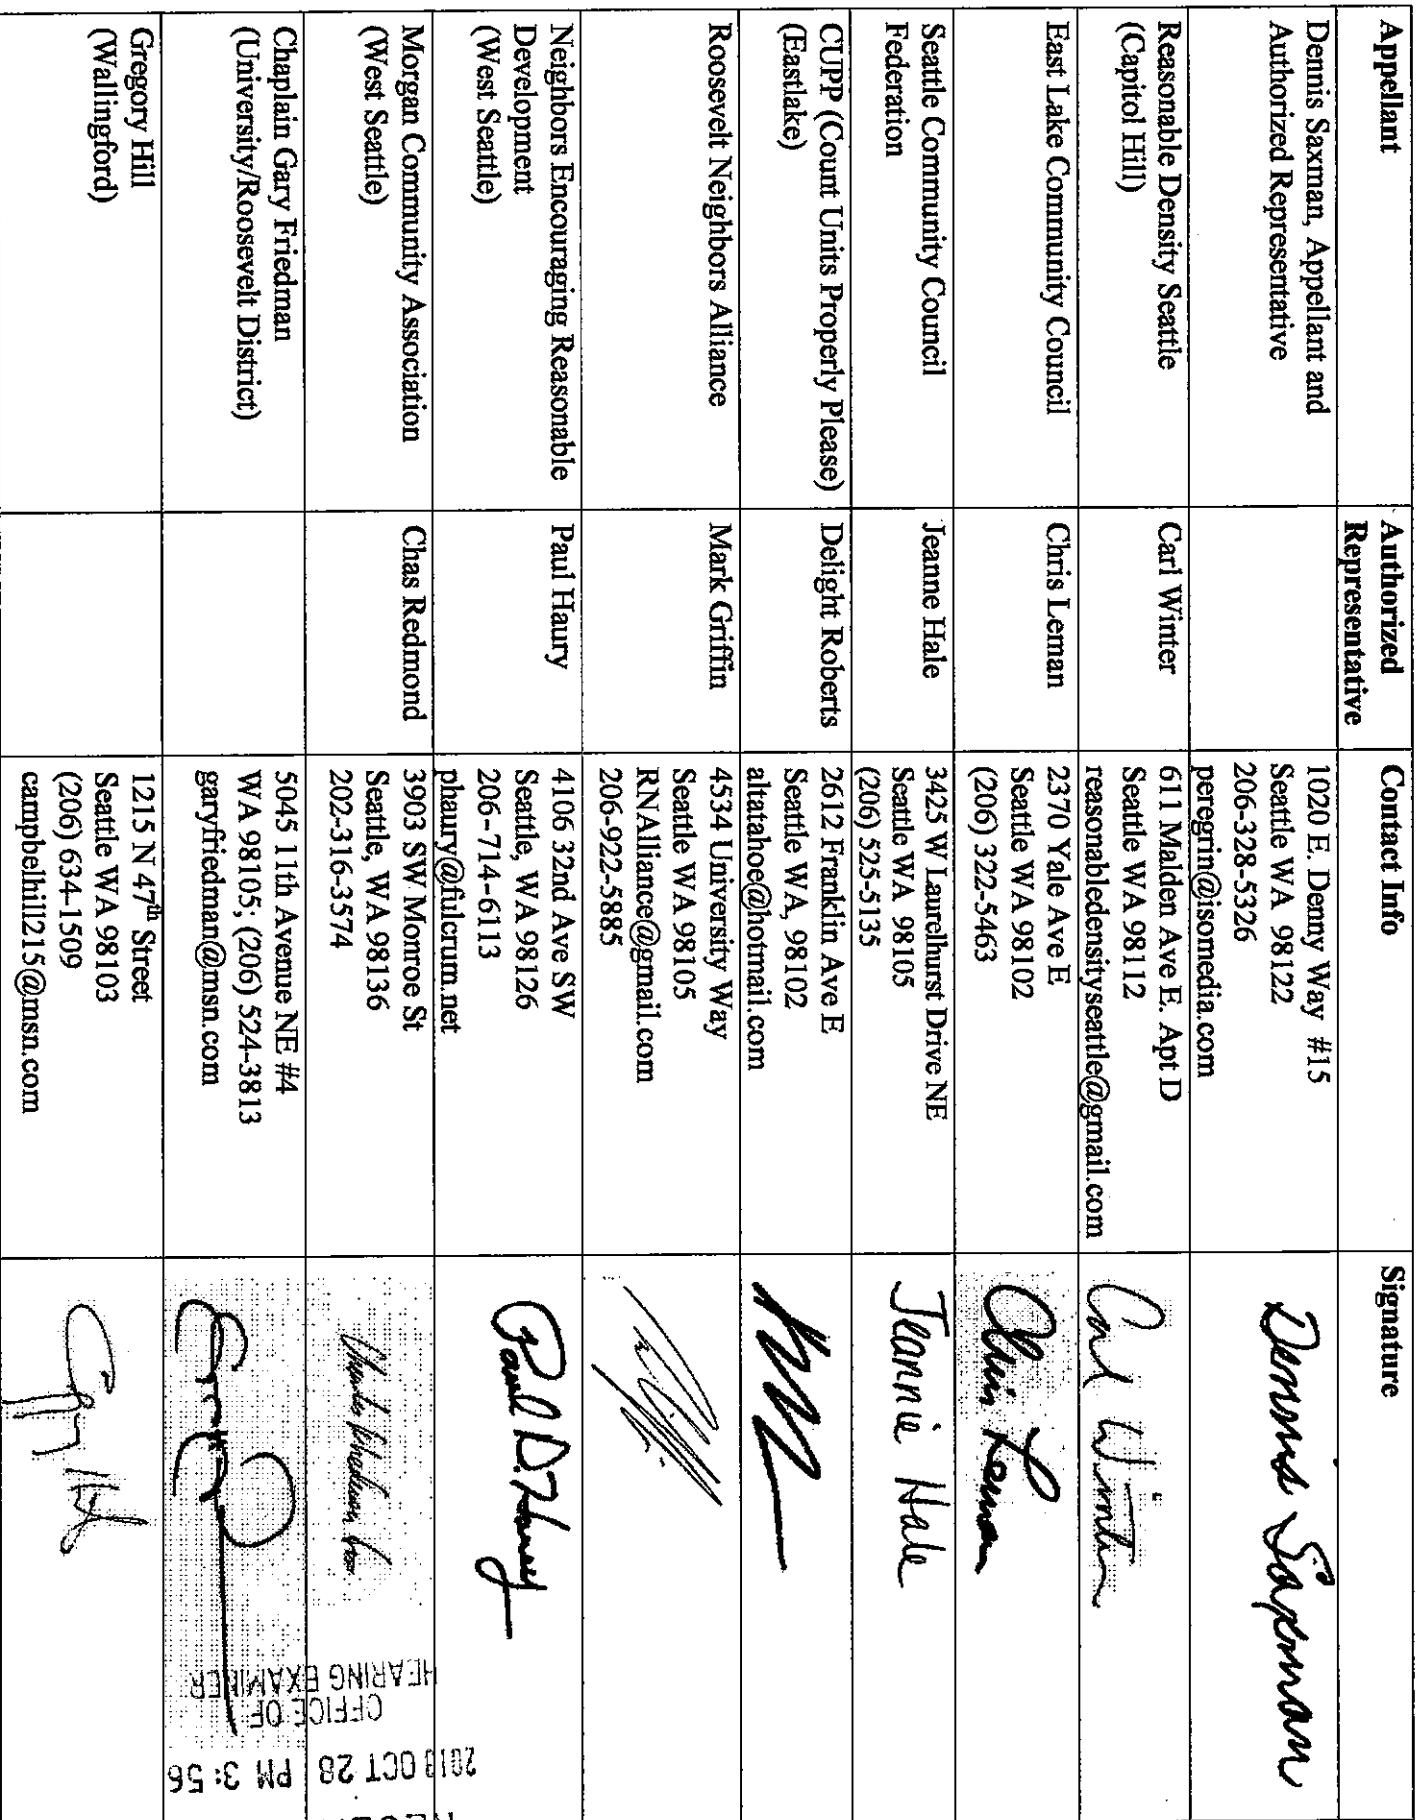 Appellant
Authorized
Representative
Contact Info
Signature
Dennis Saxman, Appellant and
Authorized Representative
1020 E. Denny Way #15
Seattle WA 98122
206-328-5326
peregrin@isomedia.com
Dennis Saxman
Reasonable Density Seattle
(Capitol Hill)
Carl Winter
611 Malden Ave E. Apt D
Seattle WA 98112
reasonabledensityseattle@gmail.com
Carl Winter
East Lake Community Council
Chris Leman
2370 Yale Ave E
Seattle WA 98102
(206) 322-5463
Chris Leman
Seattle Community Council
Federation
Jeanne Hale
3425 W Laurelhurst Drive NE
Seattle WA 98105
(206) 525-5135
Jeannie Hale
CUPP (Count Units Properly Please)
(Eastlake)
Delight Roberts
2612 Franklin Ave E
Seattle WA, 98102
altatahoe@hotmail.com
Roosevelt Neighbors Alliance
Mark Griffin
4534 University Way
Seattle WA 98105
RNAlliance@gmail.com
206-922-5885
Neighbors Encouraging Reasonable
Development
(West Seattle)
Paul Haury
4106 32nd Ave SW
Seattle, WA 98126
206-714-6113
phaury@fulcrum.net
Paul D. Haury
Morgan Community Association
(West Seattle)
Chas Redmond
3903 SW Monroe St
Seattle, WA 98136
202-316-3574
Chaplain Gary Friedman
(University/Roosevelt District)
5045 11th Avenue NE #4
WA 98105; (206) 524-3813
garyfriedman@msn.com
Gregory Hill
(Wallingford)
1215 N 47th Street
Seattle WA 98103
(206) 634-1509
campbelhill215@msn.com
2013 OCT 28 PM 3:56
OFFICE OF
HEARING EXAMINER